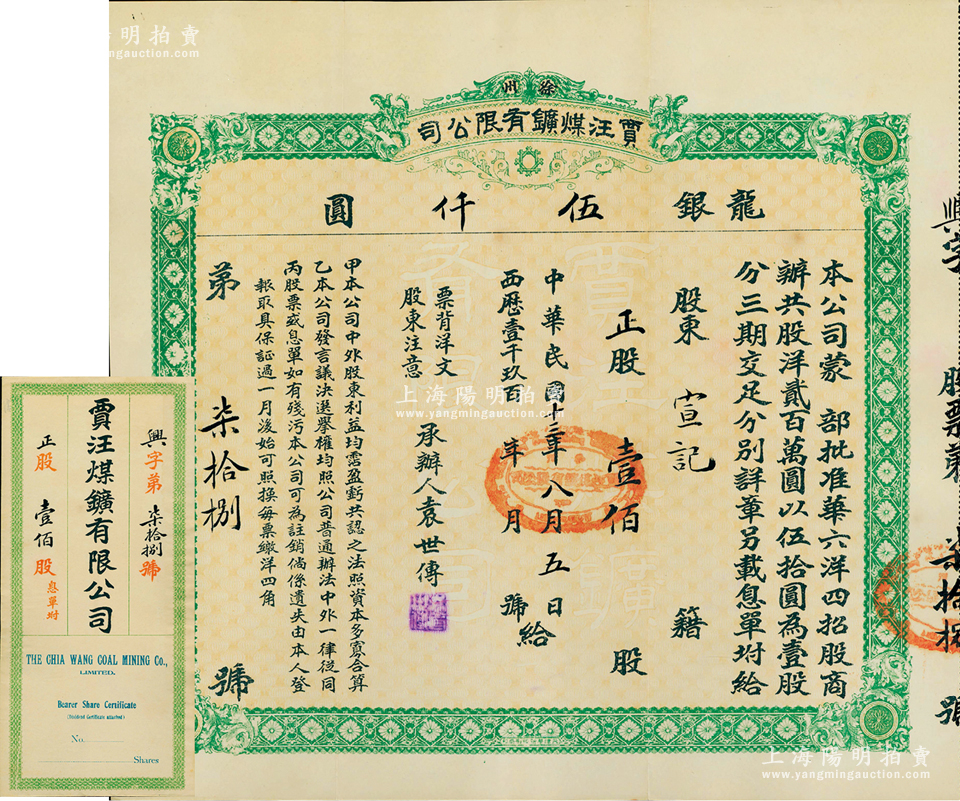 上海陽明拍賣
www.yangmingauction.com
徐州
賈汪煤鑛有限公司
龍銀伍仟圓
本公司蒙 部批准華六洋四招股商
辦共股洋貳百萬圓以伍拾圓為壹股
分三期交足分別詳章另載息單坿給
股東 宣記 籍
正股 壹佰 股
中華民國十三年八月五日
西歷壹千玖百 年 月 號
給
票背洋文
股東注意
承辦人袁世傳
甲本公司中外股東利益均霑盈虧共認之法照資本多寡合算
乙本公司發言議決選擧權均照公司普通辦法中外一律從同
丙股票或息單如有殘污本公司可為註銷倘係遺失由本人登
報取具保証過一月後始可照換每票繳洋四角
第 柒拾捌 號
興字
股票第
柒拾捌
號
上海陽明拍賣
www.yangmingauction.com
興字第 柒拾捌 號
賈汪煤鑛有限公司
正股 壹佰股 息單坿
THE CHIA WANG COAL MINING Co.,
LIMITED.
Bearer Share Certificate
(Dividend Certificate attached)
No.
Shares
上海陽明拍賣
www.yangmingauction.com